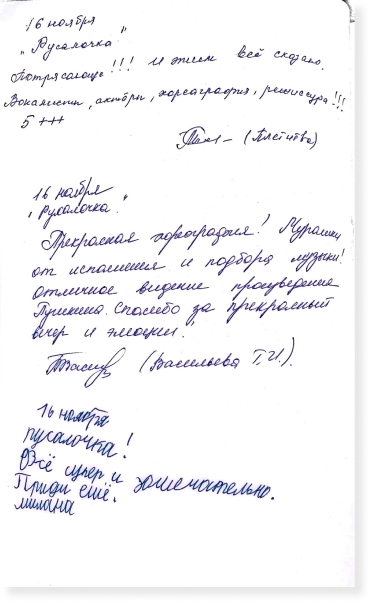 16 ноября
"Русалочка"
Потрясающе!!! И этим всё сказано.
Вокалисты, актёры, хореография, режиссура!!!
5+++
16 ноября
"Русалочка".
Прекрасная хореография! Мурашки
от исполнения и подбора музыки!
Отличное видение произведения
Пушкина. Спасибо за прекрасный
вечер и эмоции!
(Васильева Т.И.).
16 ноября
русалочка!
Всё супер и замечательно.
Приди ещё.
милана